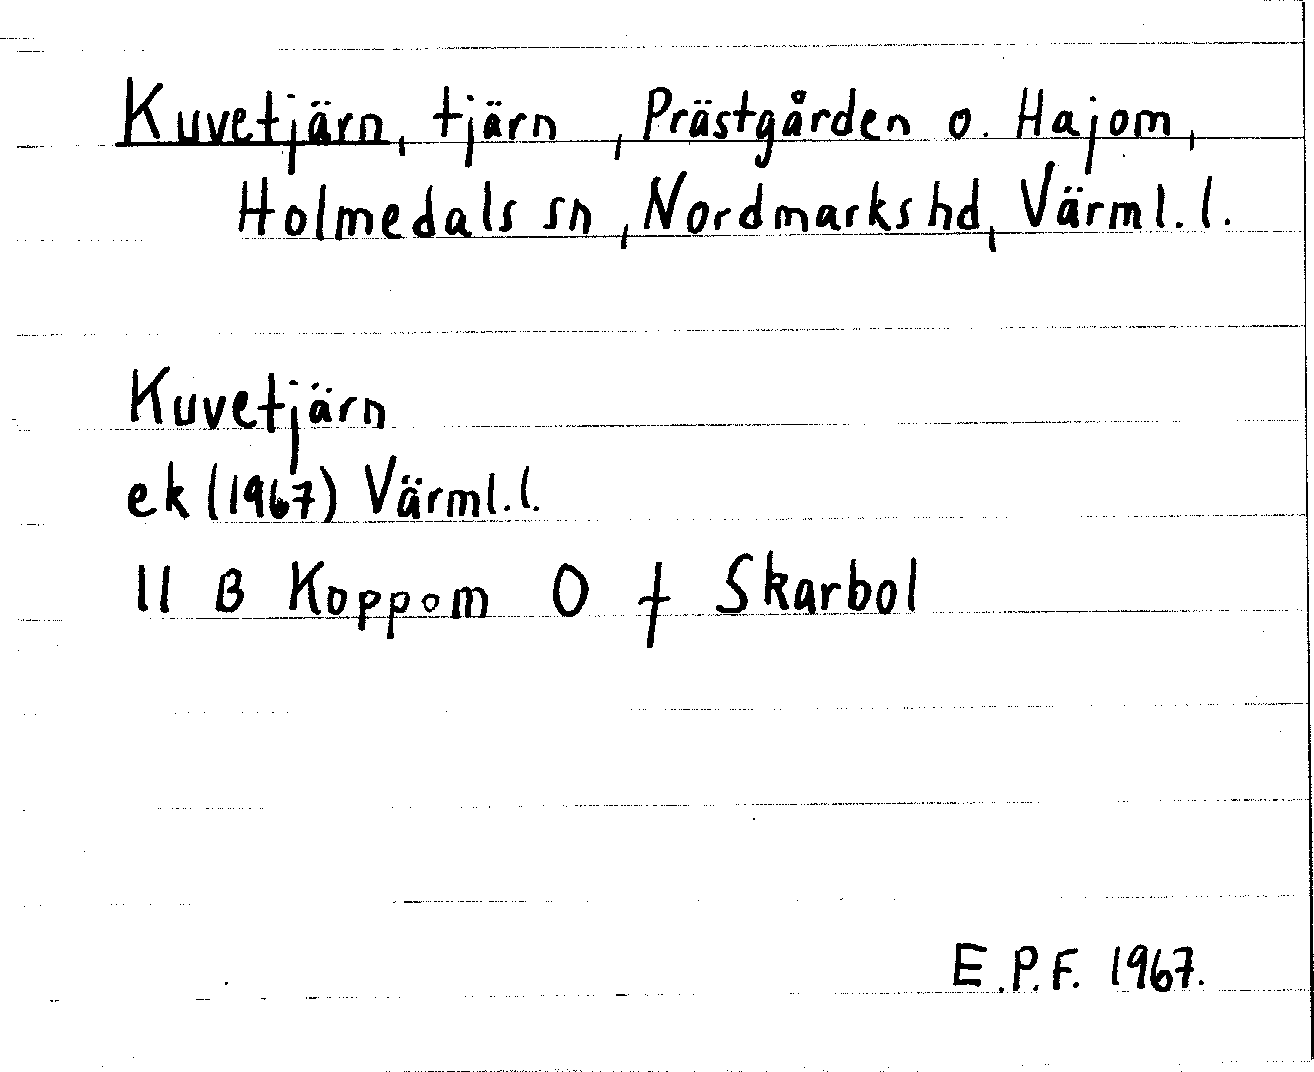 Kuvetjärn, tjärn, Prästgården o. Hajom,
Holmedals sn, Nordmarks hd, Värml. l.
Kuvetjärn
ek (1967) Värml. l.
11 B Koppom O f Skarbol
E.P.F. 1967.